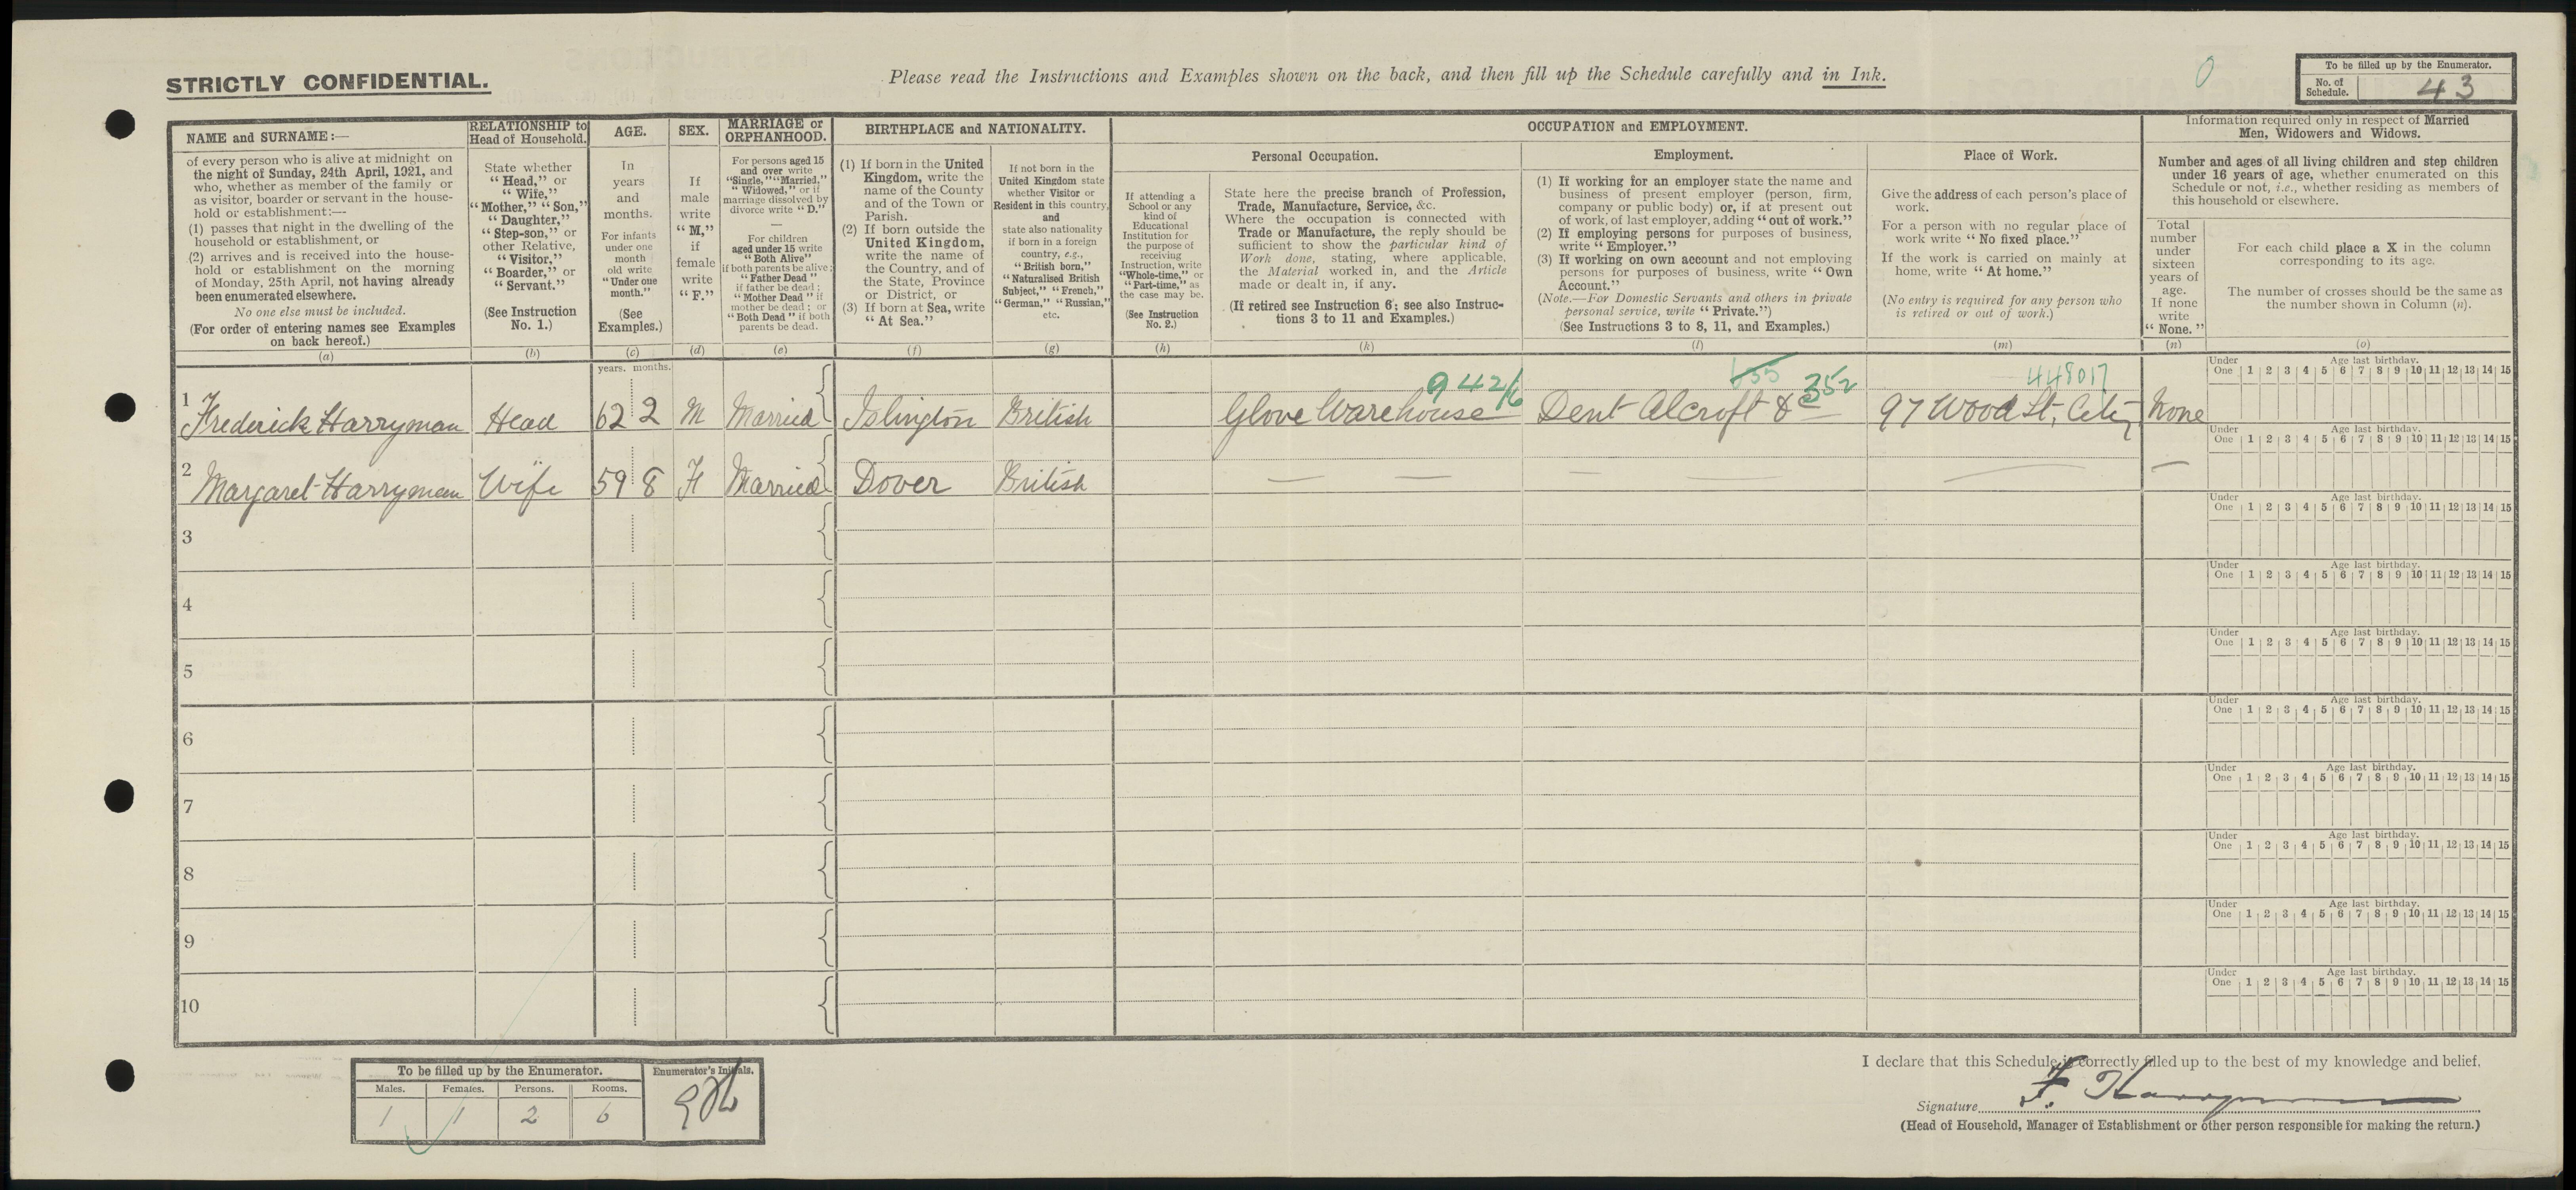 STRICTLY CONFIDENTIAL.
Please read the Instructions and Examples shown on the back, and then fill up the Schedule carefully and in Ink.
0
To be filled up by the Enumerator.
No. of Schedule. 43
NAME and SURNAME:—
of every person who is alive at midnight on
the night of Sunday, 24th April, 1921, and
who, whether as member of the family or
as visitor, boarder or servant in the house-
hold or establishment:—
(1) passes that night in the dwelling of the
household or establishment, or
(2) arrives and is received into the house-
hold or establishment on the morning
of Monday, 25th April, not having already
been enumerated elsewhere.
No one else must be included.
(For order of entering names see Examples
on back hereof.)
(a)
RELATIONSHIP to
Head of Household.
State whether
"Head," or
"Wife,"
"Mother," "Son,"
"Daughter,"
"Step-son," or
other Relative,
"Visitor,"
"Boarder," or
"Servant."
(See Instruction
No. 1.)
(b)
AGE.
In
years
and
months.
For infants
under one
month
old write
"Under one
month."
(See
Examples.)
(c)
SEX.
If
male
write
"M,"
if
female
write
"F."
(d)
MARRIAGE or
ORPHANHOOD.
For persons aged 15
and over write
"Single," "Married,"
"Widowed," or if
marriage dissolved by
divorce write "D."
—
For children
aged under 15 write
"Both Alive"
if both parents be alive;
"Father Dead"
if father be dead;
"Mother Dead" if
mother be dead; or
"Both Dead" if both
parents be dead.
(e)
BIRTHPLACE and NATIONALITY.
(1) If born in the United
Kingdom, write the
name of the County
and of the Town or
Parish.
(2) If born outside the
United Kingdom,
write the name of
the Country, and of
the State, Province
or District, or
(3) If born at Sea, write
"At Sea."
(f)
If not born in the
United Kingdom state
whether Visitor or
Resident in this country,
and
state also nationality
if born in a foreign
country, e.g.,
"British born,"
"Naturalised British
Subject," "French,"
"German," "Russian,"
etc.
(g)
OCCUPATION and EMPLOYMENT.
If attending a
School or any
kind of
Educational
Institution for
the purpose of
receiving
Instruction, write
"Whole-time," or
"Part-time," as
the case may be.
(See Instruction
No. 2.)
(h)
Personal Occupation.
State here the precise branch of Profession,
Trade, Manufacture, Service, &c.
Where the occupation is connected with
Trade or Manufacture, the reply should be
sufficient to show the particular kind of
Work done, stating, where applicable,
the Material worked in, and the Article
made or dealt in, if any.
(If retired see Instruction 6; see also Instruc-
tions 3 to 11 and Examples.)
(k)
Employment.
(1) If working for an employer state the name and
business of present employer (person, firm,
company or public body) or, if at present out
of work, of last employer, adding "out of work."
(2) If employing persons for purposes of business,
write "Employer."
(3) If working on own account and not employing
persons for purposes of business, write "Own
Account."
(Note.—For Domestic Servants and others in private
personal service, write "Private.")
(See Instructions 3 to 8, 11, and Examples.)
(l)
Place of Work.
Give the address of each person's place of
work.
For a person with no regular place of
work write "No fixed place."
If the work is carried on mainly at
home, write "At home."
(No entry is required for any person who
is retired or out of work.)
(m)
Information required only in respect of Married
Men, Widowers and Widows.
Number and ages of all living children and step children
under 16 years of age, whether enumerated on this
Schedule or not, i.e., whether residing as members of
this household or elsewhere.
Total
number
under
sixteen
years of
age.
If none
write
"None."
(n)
For each child place a X in the column
corresponding to its age.
The number of crosses should be the same as
the number shown in Column (n).
(o)
years. months.
942/6 655 352 448017
1 Frederick Harryman Head 62 2 M Married Islington British Glove Warehouse Dent Alcroft & Co 97 Wood St, City None
Under One Age last birthday. 1 2 3 4 5 6 7 8 9 10 11 12 13 14 15
2 Margaret Harryman Wife 59 8 F Married Dover British — — — — —
Under One Age last birthday. 1 2 3 4 5 6 7 8 9 10 11 12 13 14 15
3
Under One Age last birthday. 1 2 3 4 5 6 7 8 9 10 11 12 13 14 15
4
Under One Age last birthday. 1 2 3 4 5 6 7 8 9 10 11 12 13 14 15
5
Under One Age last birthday. 1 2 3 4 5 6 7 8 9 10 11 12 13 14 15
6
Under One Age last birthday. 1 2 3 4 5 6 7 8 9 10 11 12 13 14 15
7
Under One Age last birthday. 1 2 3 4 5 6 7 8 9 10 11 12 13 14 15
8
Under One Age last birthday. 1 2 3 4 5 6 7 8 9 10 11 12 13 14 15
9
Under One Age last birthday. 1 2 3 4 5 6 7 8 9 10 11 12 13 14 15
10
Under One Age last birthday. 1 2 3 4 5 6 7 8 9 10 11 12 13 14 15
To be filled up by the Enumerator.
Males. Females. Persons. Rooms.
1 1 2 6
Enumerator's Initials.
I declare that this Schedule is correctly filled up to the best of my knowledge and belief.
Signature F. Harryman
(Head of Household, Manager of Establishment or other person responsible for making the return.)